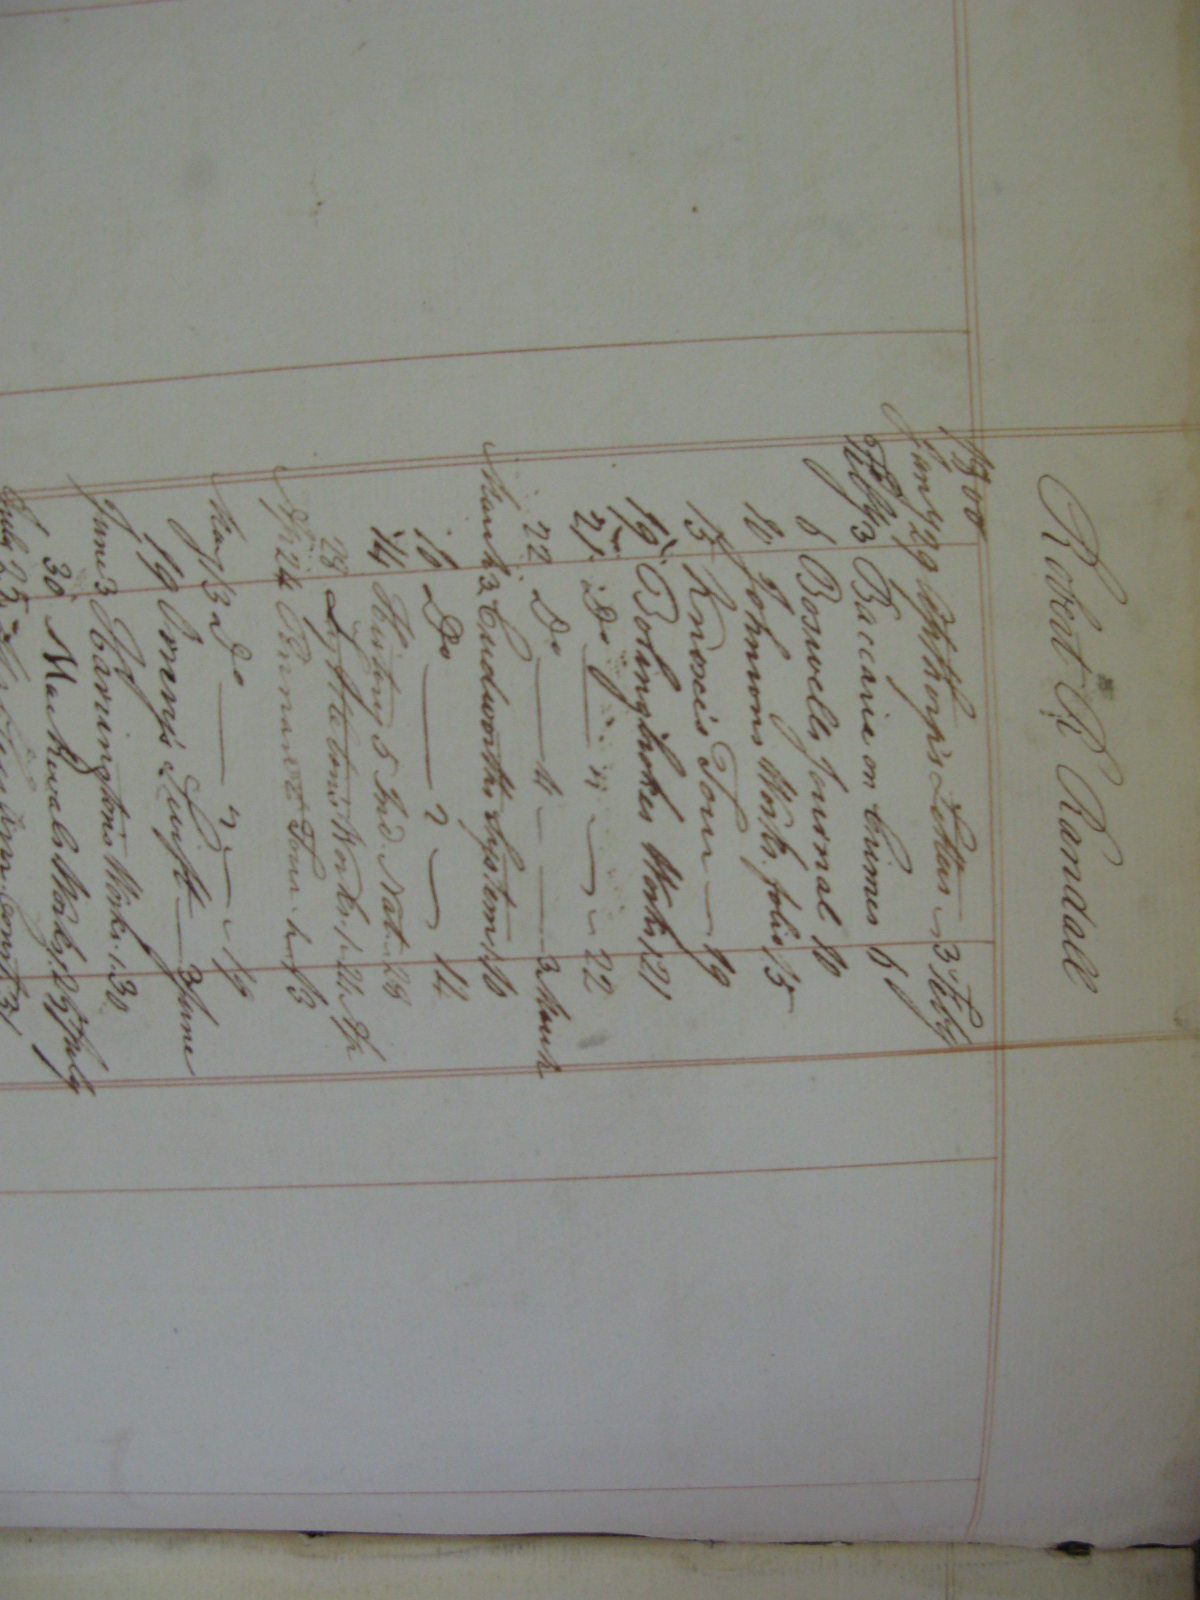 Robert R. Randall
1790
Jany 29 Letters 3 Feby
Feby 3 Baccaria on Crimes 8
8 Boswells Journal 10
Johnsons Works, folio 15
15 Knox's Tour 19
19 Bolingbrokes Works 21
21 Do 22
22 Do 4 3 March
March 3 Cudworths System 10
10 Do 2 14
14 History 5 Ind. Nat. 28
28 Lyttletons Works, 1. 24 Ap
Ap 24 Pennants Tour 1. 13
May 13 Do 2 19
19 Orrery's Swift 3 June
June 3 Harringtons Works 30
30 Mackiavels Works, 1. 25 July
July 25